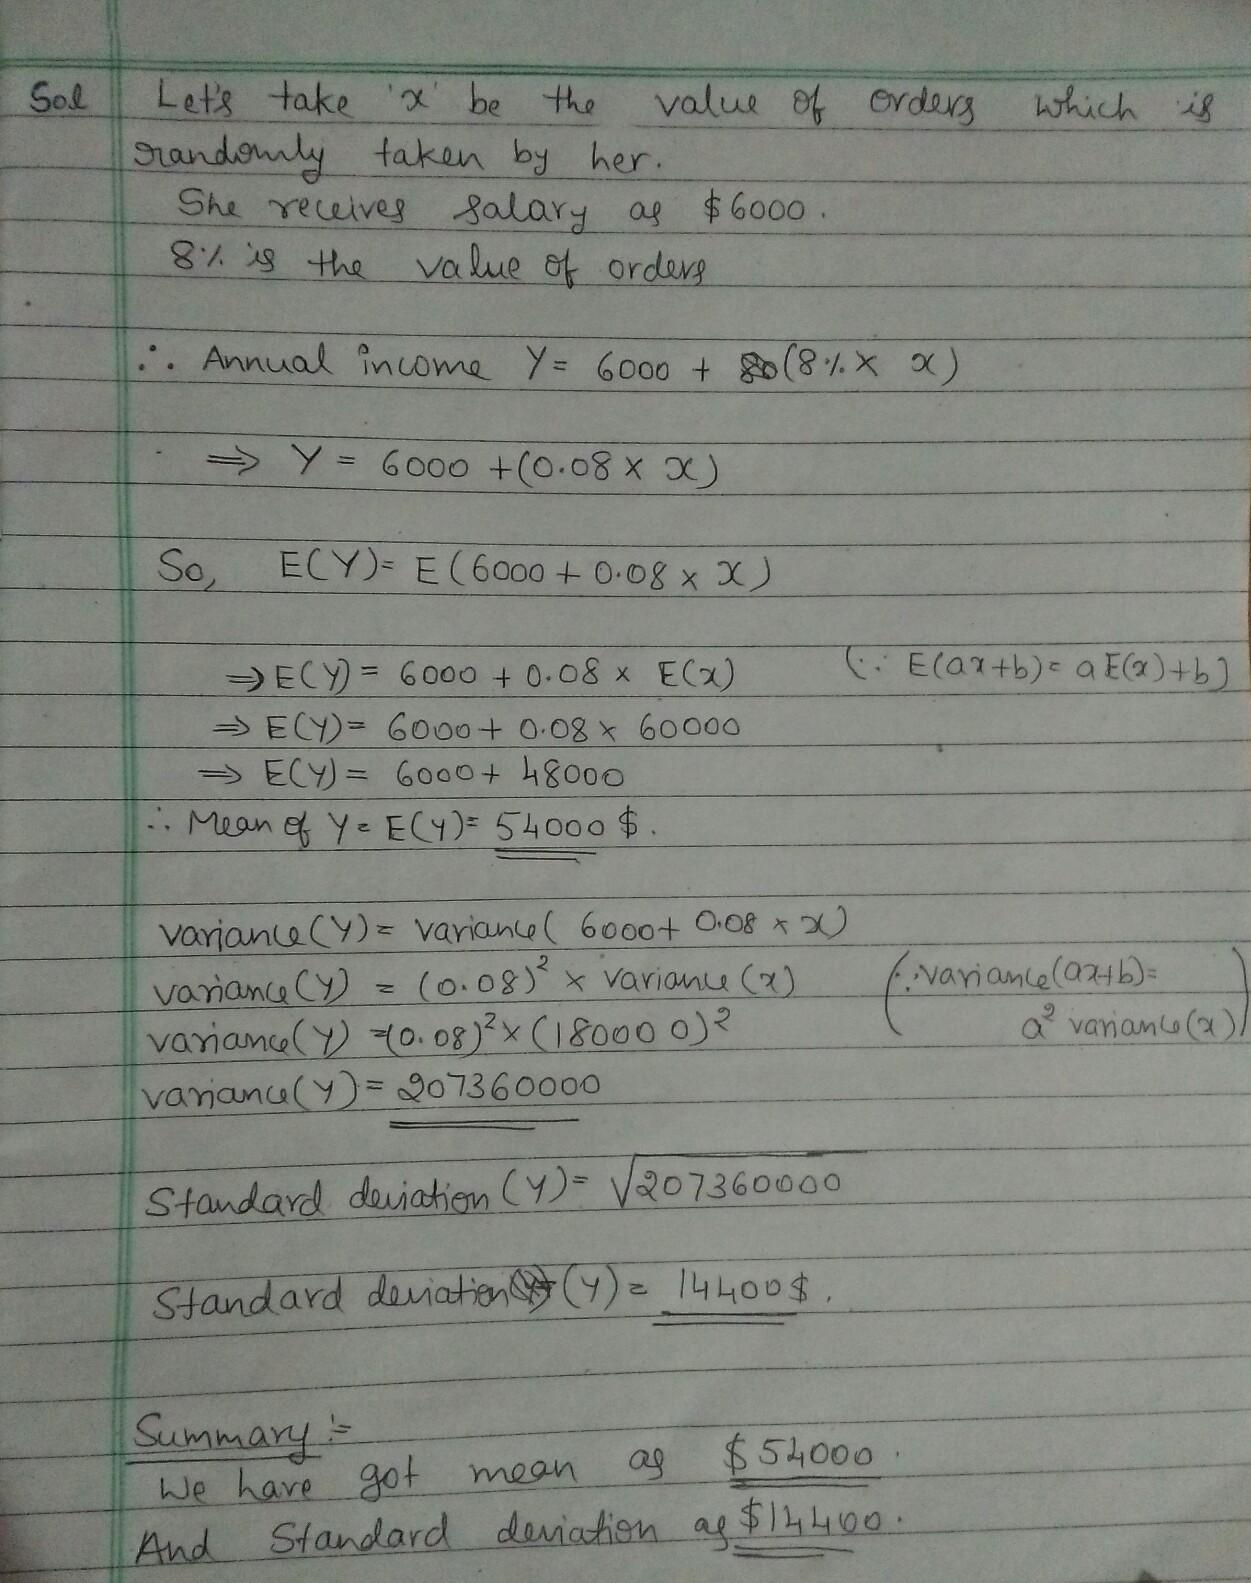 Sol Let's take 'x' be the value of orders which is
randomly taken by her.
She receives salary as $6000.
8% is the value of orders
∴ Annual income Y = 6000 + (8% × x)
⇒ Y = 6000 + (0.08 × x)
So, E(Y) = E(6000 + 0.08 × x)
⇒ E(Y) = 6000 + 0.08 × E(x) (∵ E(ax+b) = aE(x)+b)
⇒ E(Y) = 6000 + 0.08 × 60000
⇒ E(Y) = 6000 + 48000
∴ Mean of Y = E(Y) = 54000 $.
variance(Y) = variance( 6000 + 0.08 × x)
variance(Y) = (0.08)² × variance(x) (∵ variance(ax+b)=
a² variance(x))
variance(Y) = (0.08)² × (180000)²
variance(Y) = 207360000
Standard deviation (Y) = √207360000
Standard deviation (Y) = 14400 $.
Summary :-
We have got mean as $54000.
And Standard deviation as $14400.